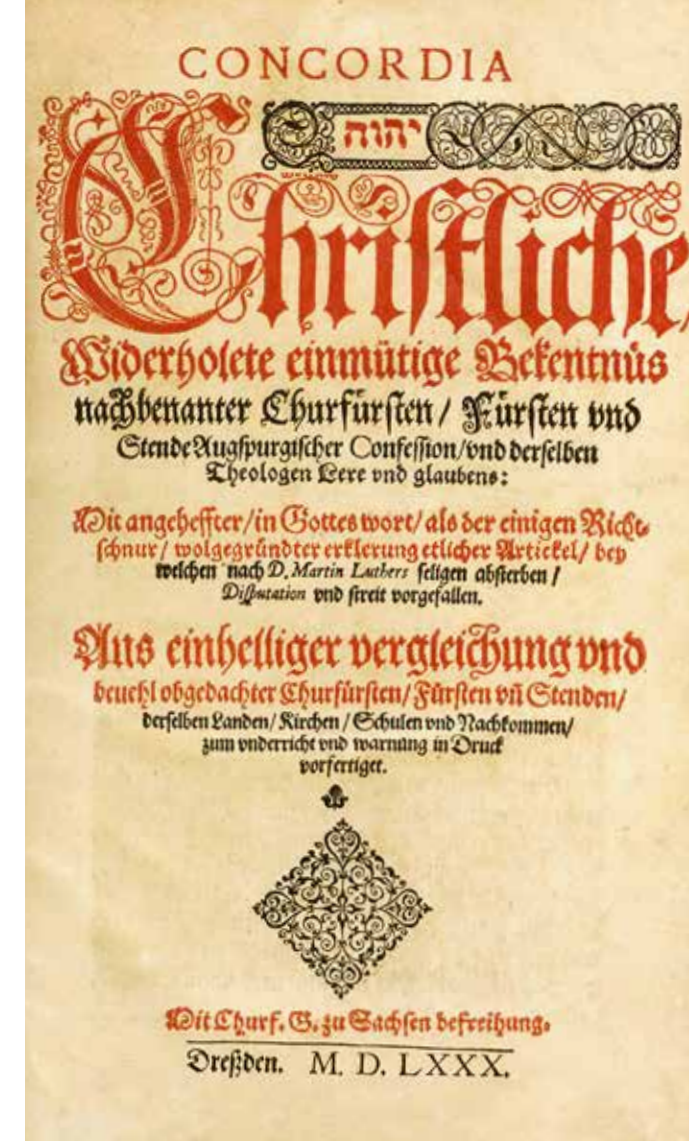 CONCORDIA
יהוה
Chriſtliche/
Widerholete einmütige Bekentnüs
nachbenanter Churfürſten/ Fürſten vnd
Stende Augſpurgiſcher Confeſſion/vnd derſelben
Theologen Lere vnd glaubens:
Mit angeheffter/in Gottes wort/als der einigen Richt⸗
ſchnur/ wolgegründter erklerung etlicher Artickel/ bey
welchen nach D. Martin Luthers ſeligen abſterben /
Diſputation vnd ſtreit vorgefallen.
Aus einhelliger vergleichung vnd
beuehl obgedachter Churfürſten/ Fürſten vñ Stenden/
derſelben Landen/ Kirchen / Schulen vnd Nachkommen/
zum vnderricht vnd warnung in Druck
vorfertiget.
Mit Churf. G. zu Sachſen befreihung.
Dreßden. M. D. LXXX.